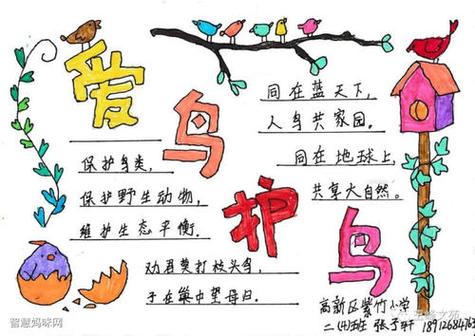 爱
鸟
护
鸟
保护鸟类,
保护野生动物,
维护生态平衡.
劝君莫打枝头鸟,
子在巢中望母归.
同在蓝天下,
人鸟共家园.
同在地球上,
共享大自然.
高新区紫竹小学
二(4)班
智慧妈咪网